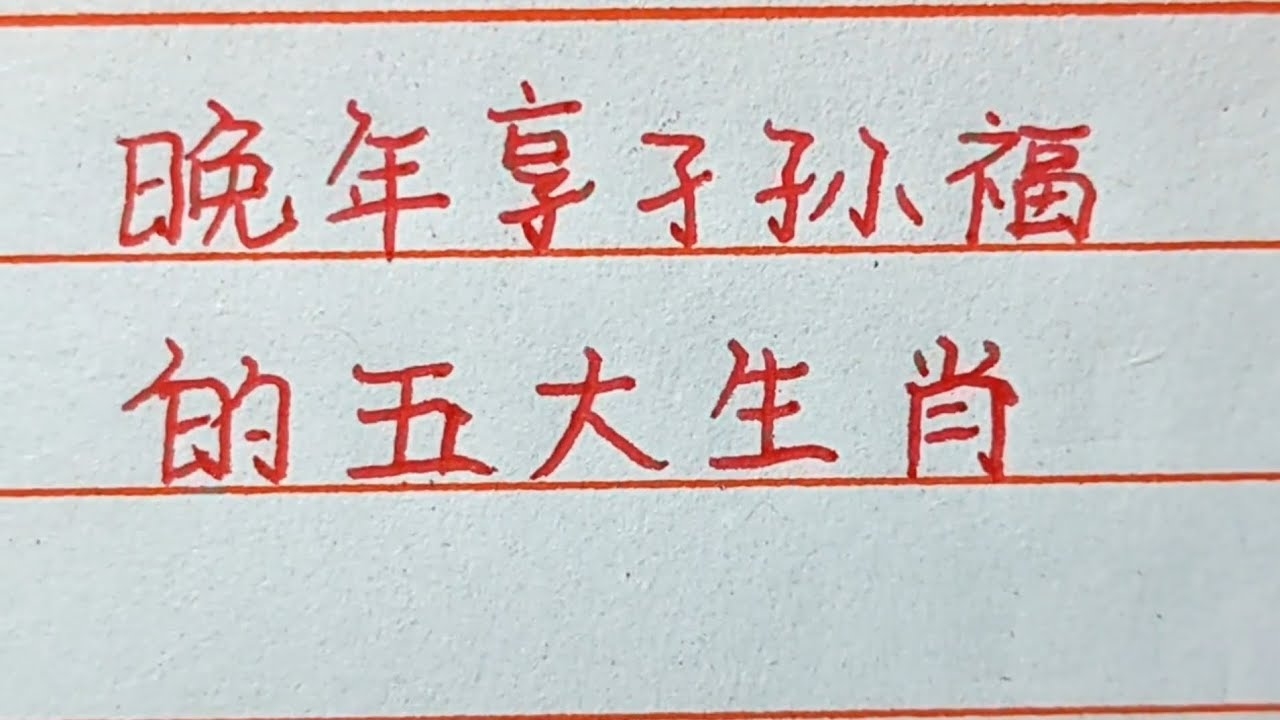 晚年享子孙福
的五大生肖